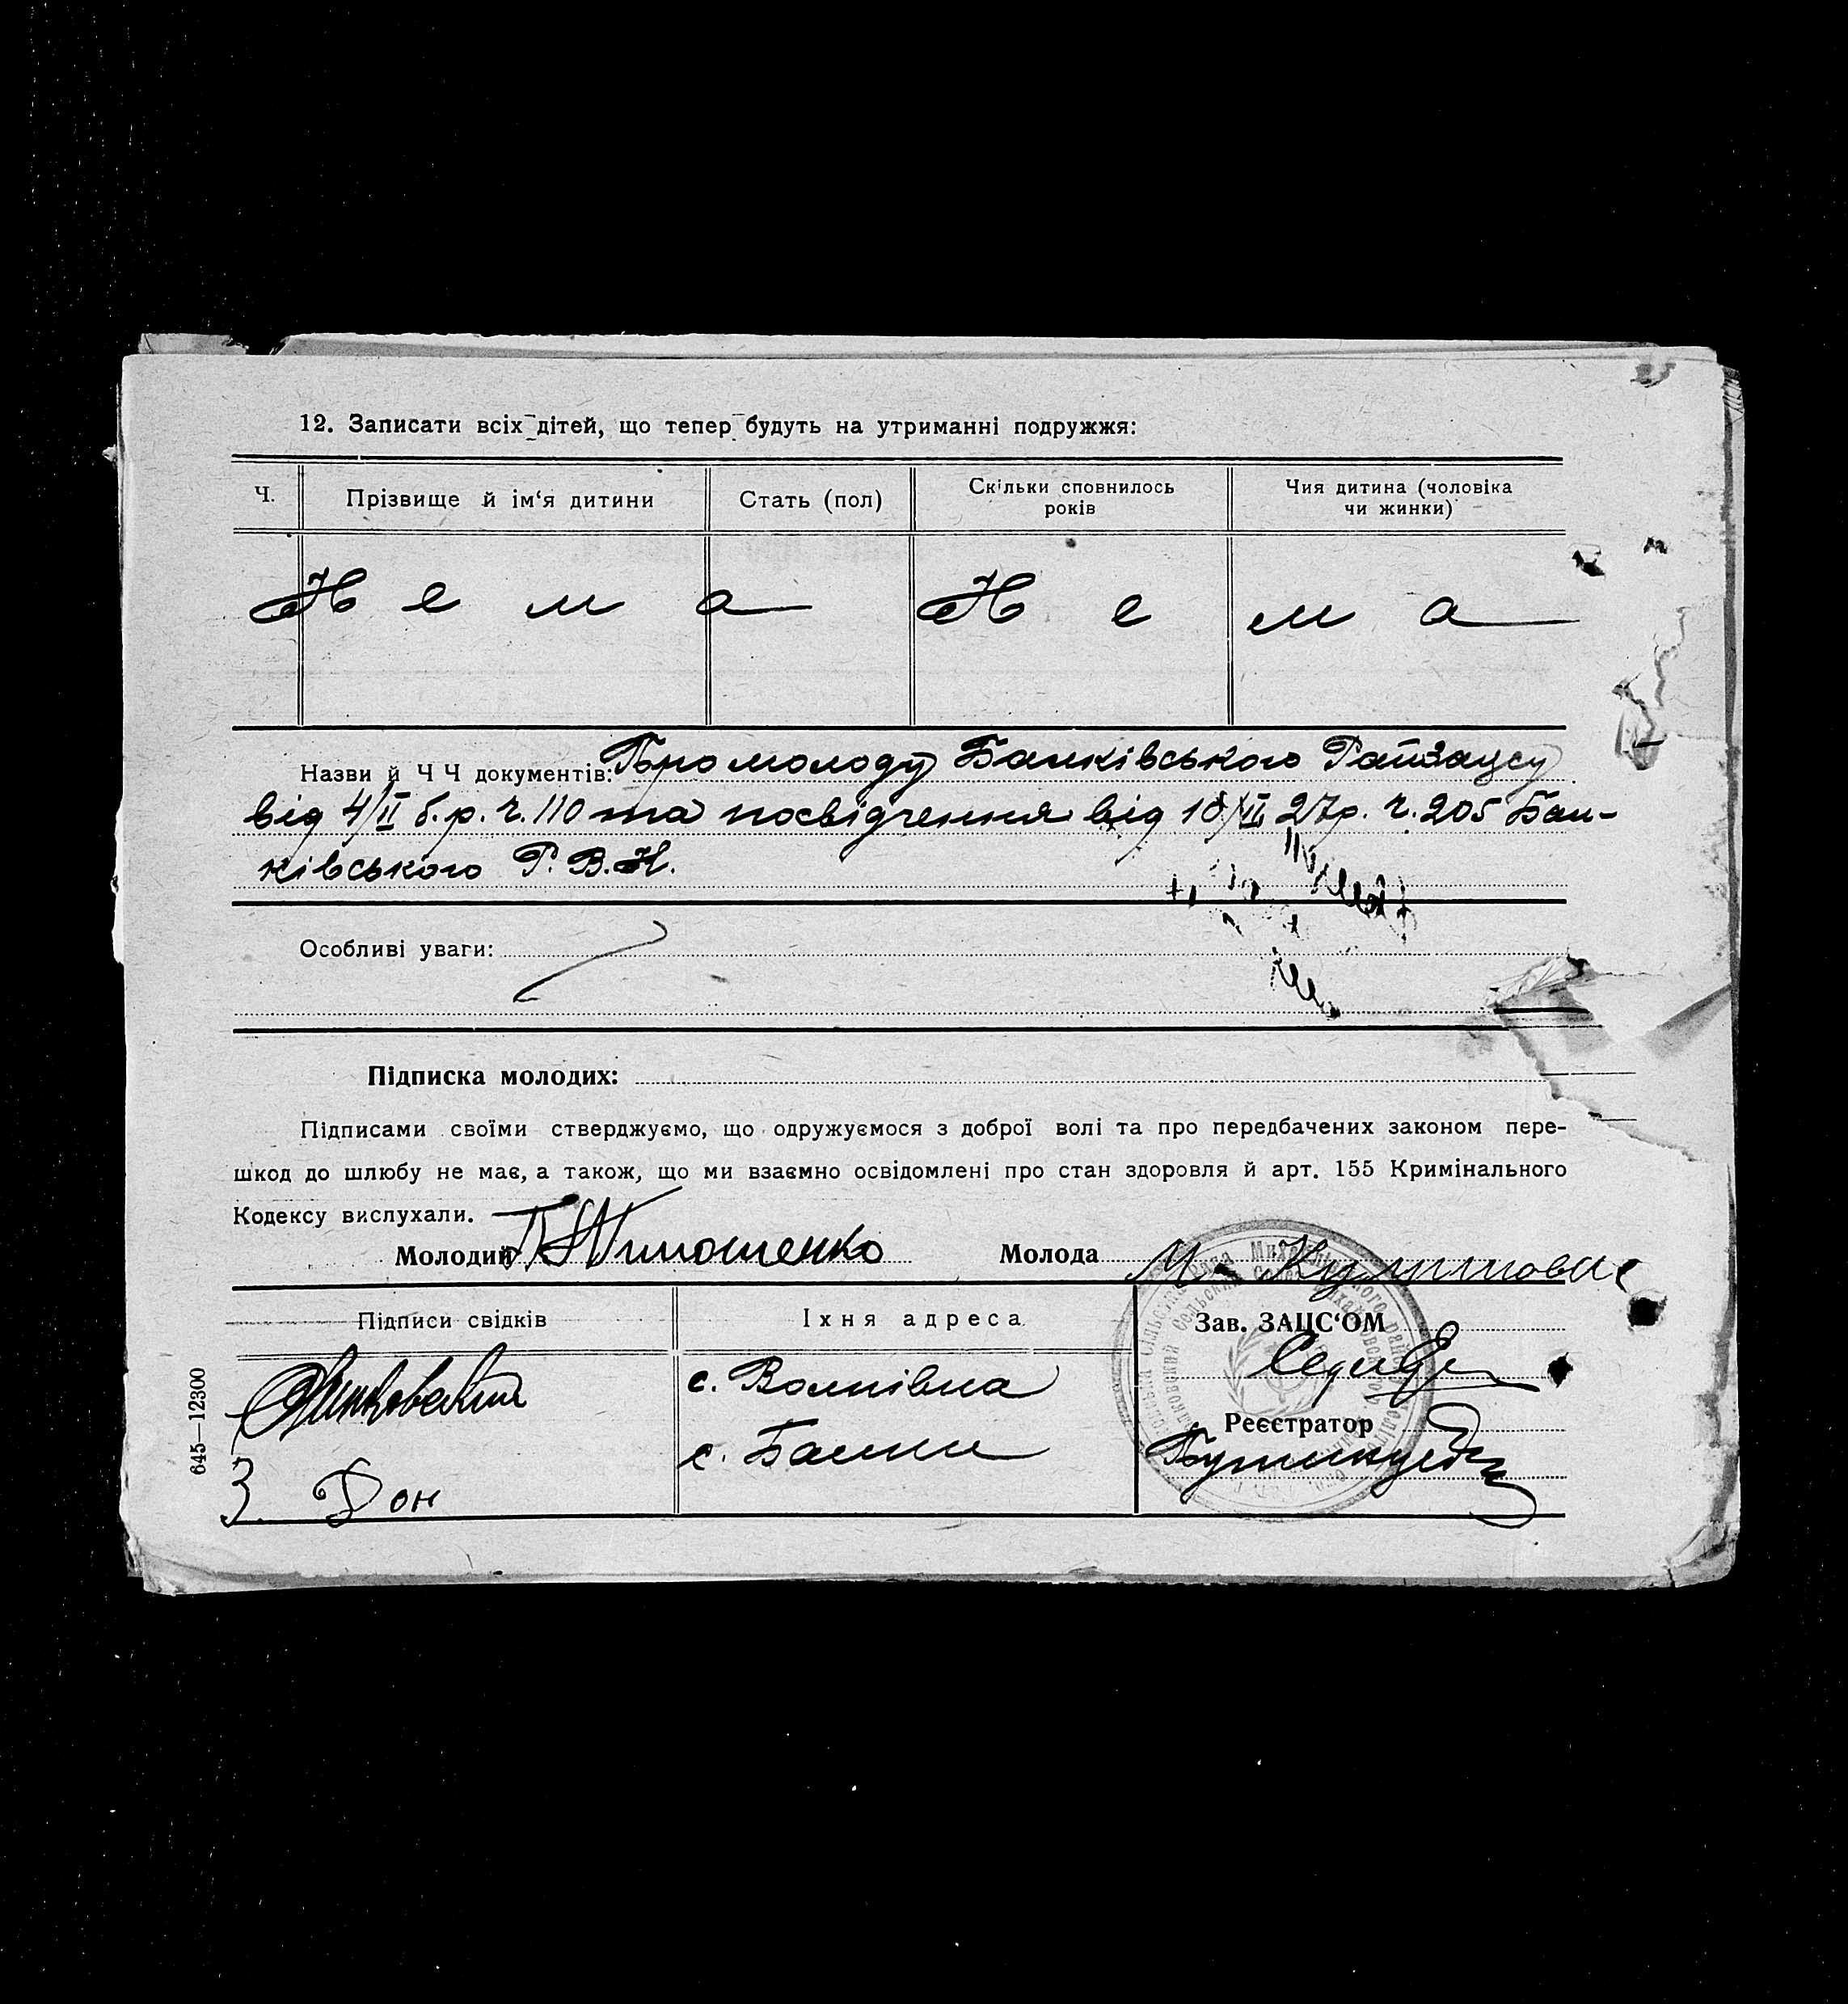 12. Записати всіх дітей, що тепер будуть на утриманні подружжя:
Ч. Прізвище й ім‘я дитини Стать (пол) Скільки сповнилось років Чия дитина (чоловіка чи жинки)
Нема Нема
Назви й ЧЧ документів: Про молоду Банківського Райзацсу
від 4/II б.р. ч. 110 та посвідчення від 10/II 27р. ч. 205 Бан-
ківського Р.В.К.
Особливі уваги:
Підписка молодих:
Підписами своїми стверджуємо, що одружуємося з доброї волі та про передбачених законом пере-
шкод до шлюбу не має, а також, що ми взаємно освідомлені про стан здоровля й арт. 155 Кримінального
Кодексу вислухали.
Молодий Тимошенко Молода М.
Підписи свідків Їхня адреса Зав. ЗАЦС‘ОМ
с.
с. Банки Реєстратор
З. Дон
645—12300